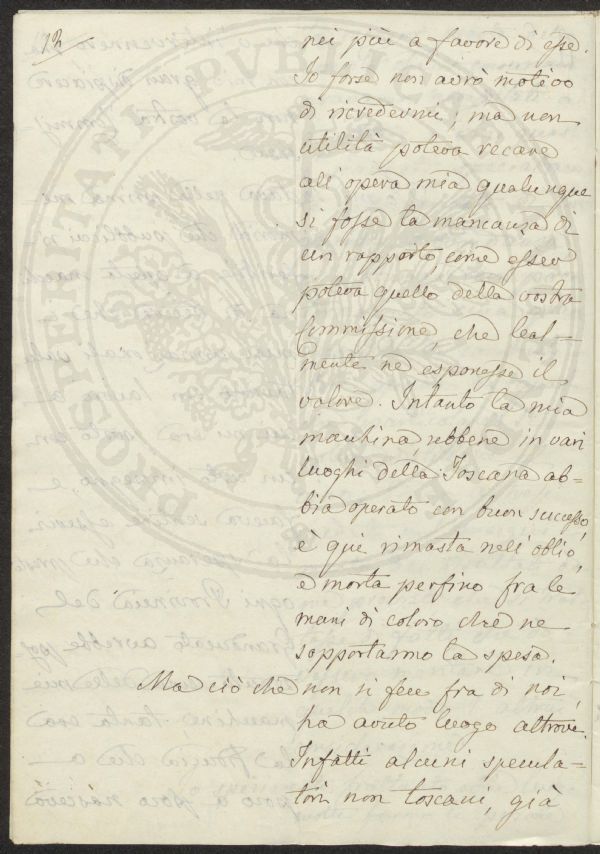 12
nei più a favore di esse.
Io forse non avrò motivo
di ricredermi; ma non
utilità poteva recare
all'opera mia qualunque
si fosse la mancanza di
un rapporto, come esser
poteva quello della vostra
Commissione, che leal-
mente ne esponesse il
valore. Intanto la mia
macchina, sebbene in vari
luoghi della Toscana ab-
bia operato con buon successo,
è qui rimasta nell'oblio,
e morta perfino fra le
mani di coloro che ne
sopportarono la spesa.
Ma ciò che non si fece fra di noi,
ha avuto luogo altrove.
Infatti alcuni specula-
tori non toscani, già
PROSPERITATI PUBLICAE